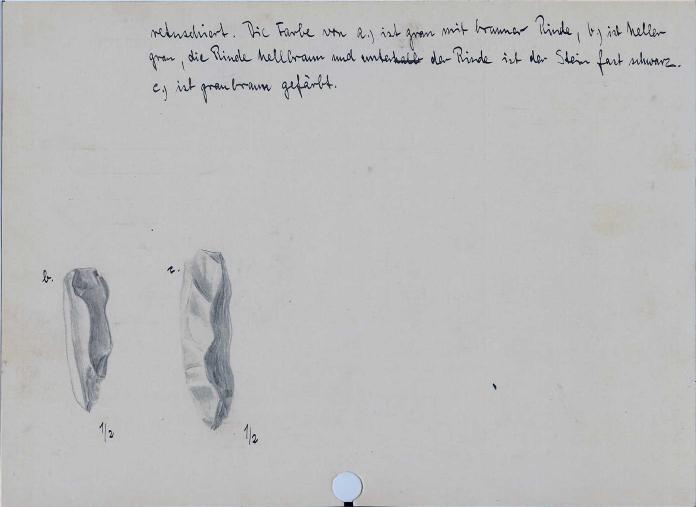 retuschiert. Die Farbe von a.) ist grau mit brauner Rinde, b.) ist heller
grau, die Rinde hellbraun und unterhalb der Rinde ist der Stein fast schwarz.
c.) ist graubraun gefärbt.
b.
1/2
1/2